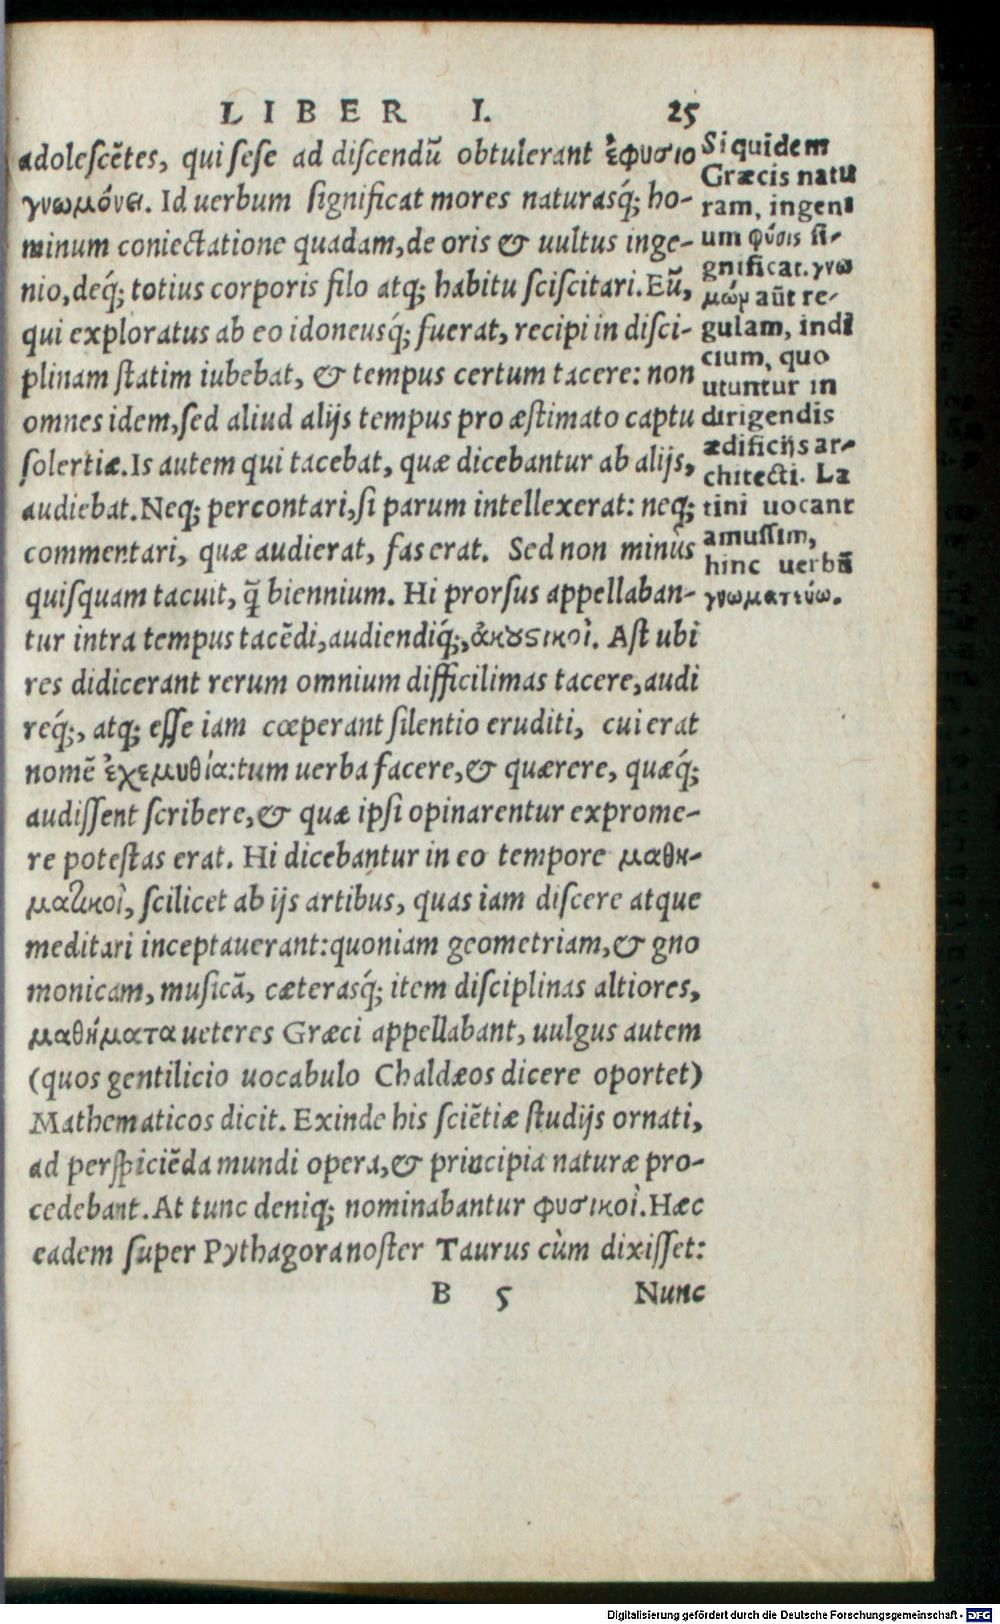 LIBER I. 25
adolescētes, qui sese ad discendū obtulerant ἐφυσιο
γνωμόνει. Id uerbum significat mores naturasq́; ho-
minum coniectatione quadam, de oris & uultus inge-
nio, deq́; totius corporis filo atq; habitu sciscitari. Eū,
qui exploratus ab eo idoneusq́; fuerat, recipi in disci-
plinam statim iubebat, & tempus certum tacere: non
omnes idem, sed aliud alijs tempus pro æstimato captu
solertiæ. Is autem qui tacebat, quæ dicebantur ab alijs,
audiebat. Neq; percontari, si parum intellexerat: neq;
commentari, quæ audierat, fas erat. Sed non minùs
quisquam tacuit, q̄ biennium. Hi prorsus appellaban-
tur intra tempus tacēdi, audiendiq́;, ἀκουστικοὶ. Ast ubi
res didicerant rerum omnium difficilimas tacere, audi
req́;, atq; esse iam cœperant silentio eruditi, cui erat
nomē ἐχεμυθία: tum uerba facere, & quærere, quæq́;
audissent scribere, & quæ ipsi opinarentur exprome-
re potestas erat. Hi dicebantur in eo tempore μαθη-
ματικοὶ, scilicet ab ijs artibus, quas iam discere atque
meditari inceptauerant: quoniam geometriam, & gno
monicam, musicā, cæterasq́; item disciplinas altiores,
μαθήματα ueteres Græci appellabant, uulgus autem
(quos gentilicio uocabulo Chaldæos dicere oportet)
Mathematicos dicit. Exinde his sciētiæ studijs ornati,
ad perspiciēda mundi opera, & principia naturæ pro-
cedebant. At tunc deniq; nominabantur φυσικοὶ. Hæc
eadem super Pythagora noster Taurus cùm dixisset:
B 5 Nunc
Siquidem
Græcis natu
ram, ingeni
um φύσις si-
gnificat. γνω
μώμ aūt re-
gulam, indi
cium, quo
utuntur in
dirigendis
ædificijs ar-
chitecti. La
tini uocant
amussim,
hinc uerbū
γνωματεύω.
Digitalisierung gefördert durch die Deutsche Forschungsgemeinschaft - DFG